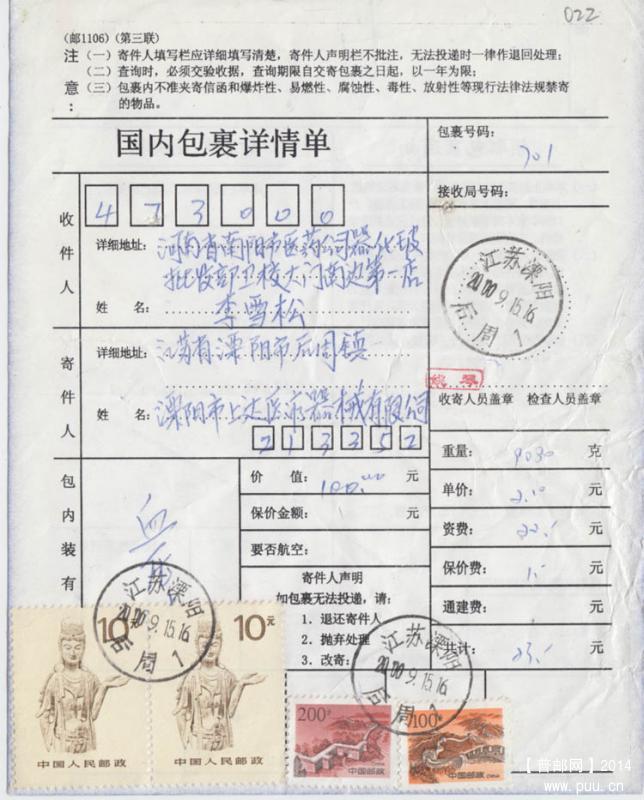 022
(邮1106) (第三联)
注 (一) 寄件人填写栏应详细填写清楚,寄件人声明栏不批注,无法投递时一律作退回处理;
(二) 查询时,必须交验收据,查询期限自交寄包裹之日起,以一年为限;
意: (三) 包裹内不准夹寄信函和爆炸性、易燃性、腐蚀性、毒性、放射性等现行法律法规禁寄
的物品。
国内包裹详情单
包裹号码:
701
接收局号码:
收件人
473000
详细地址: 河南省南阳市医药公司器化玻
批发部卫校大门南边第一店
姓 名: 李雪松
江苏溧阳
2000.9.15.16
后周 1
寄件人
详细地址: 江苏省溧阳市后周镇
姓 名: 溧阳市上达医疗器械有限公司
213352
收寄人员盖章 检查人员盖章
包内装有
价 值: 100.00 元
保价金额: 元
要否航空:
寄件人声明
如包裹无法投递,请:
1. 退还寄件人
2. 抛弃处理
3. 改寄:
重量: 9030 克
单价: 元
资费: 22. 元
保价费: 1. 元
通建费: 元
共计: 23. 元
江苏溧阳
2000.9.15.16
后周 1
江苏溧阳
2000.9.15.16
后周 1
10元
中国人民邮政
10元
中国人民邮政
200分
中国邮政
100分
中国邮政 CHINA
【普邮网】2014
www.puu.cn